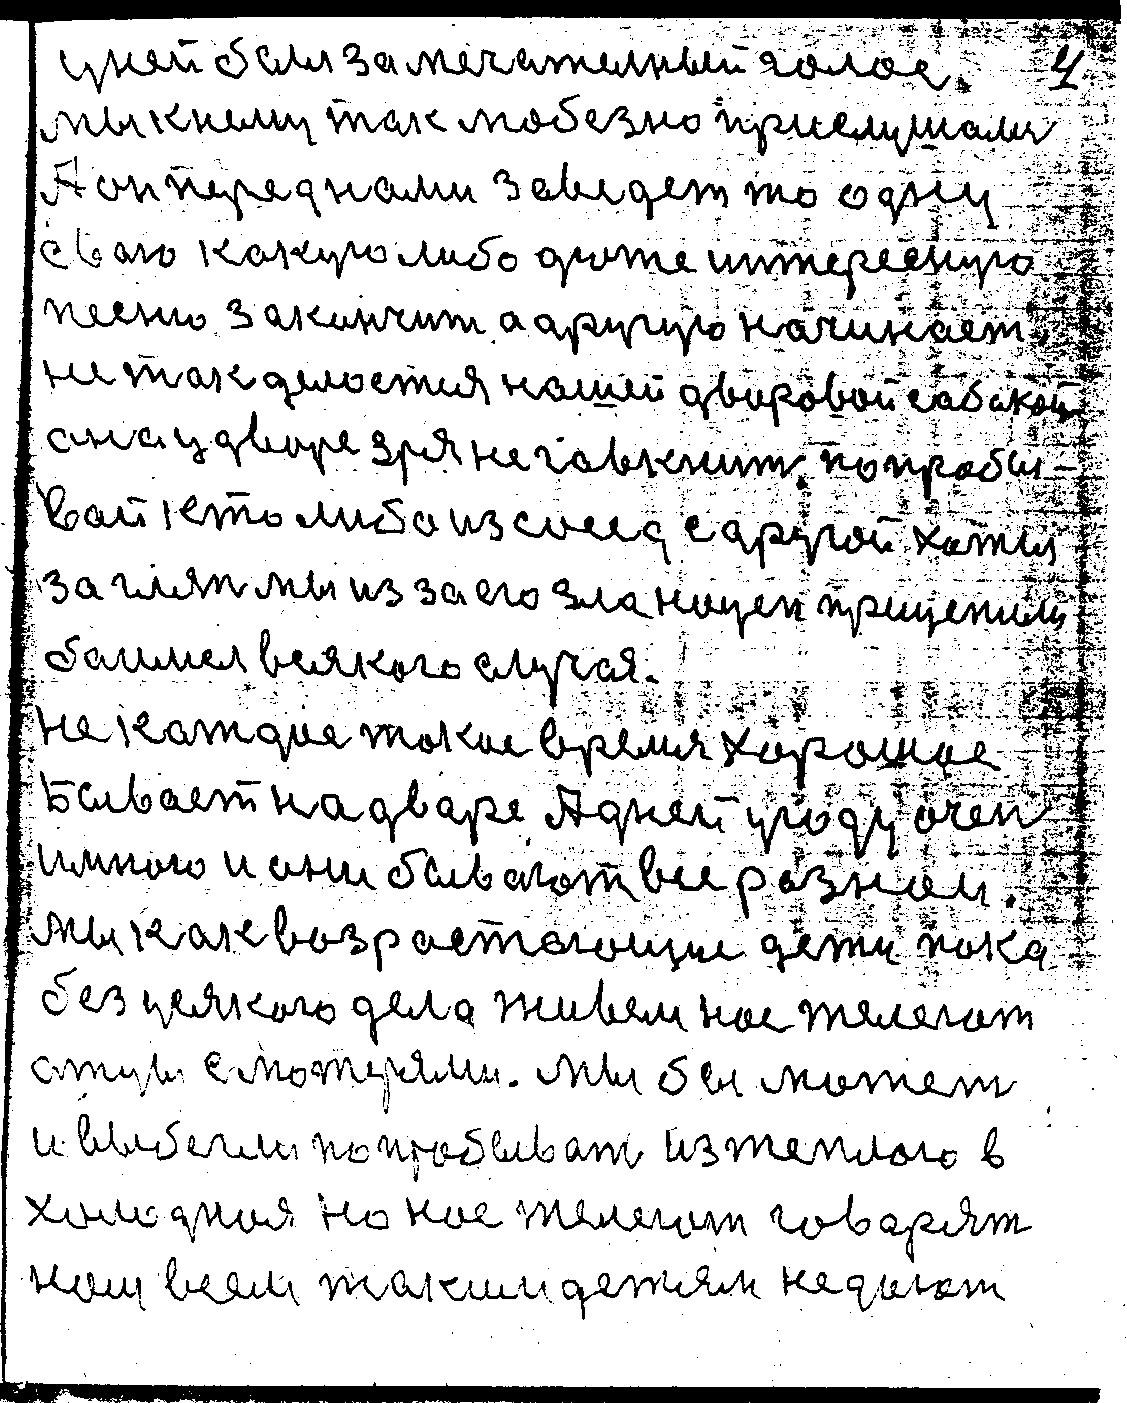 уней был замечателный голос. 4
мы кнему так любезно прислушали
А он перед нами заведет то одну
сваю какую либо дюже интересную
песню закончит а другую начинает.
не так делается нашей дворовой сабакой
она у дворе зря не гавкнит, попробы-
вай кто либо из сосед с другой хаты
загляп мы из за его зла нацеп прицепили
баимся всякого случая.
не каждое такое время хорошое
Бывает на дваре А дней угоду очен
имного и они бывают все разном.
мы как возрастающие дети пока
без усякого дела живем нас жалеют
атцы с матерями. мы бы может
и выбегли попробыват из теплого в
холодная но нас жалеют говарят
нам всем таким детям не дают